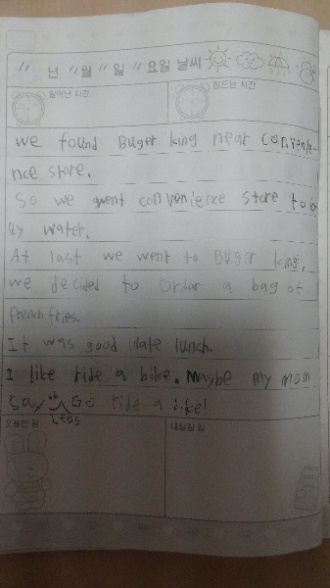 〃 년 〃월 〃일 〃요일 날씨
일어난 시간 잠드는 시간
we found Buger king near convinie-
nce store.
So we went convenience store to b
uy water.
At last we went to Buger king.
we decided to order a bag of
french fries.
It was good late lunch.
I like ride a bike. Maybe my mom
say Go ride a bike!
Lets
오늘한 일 내일할 일